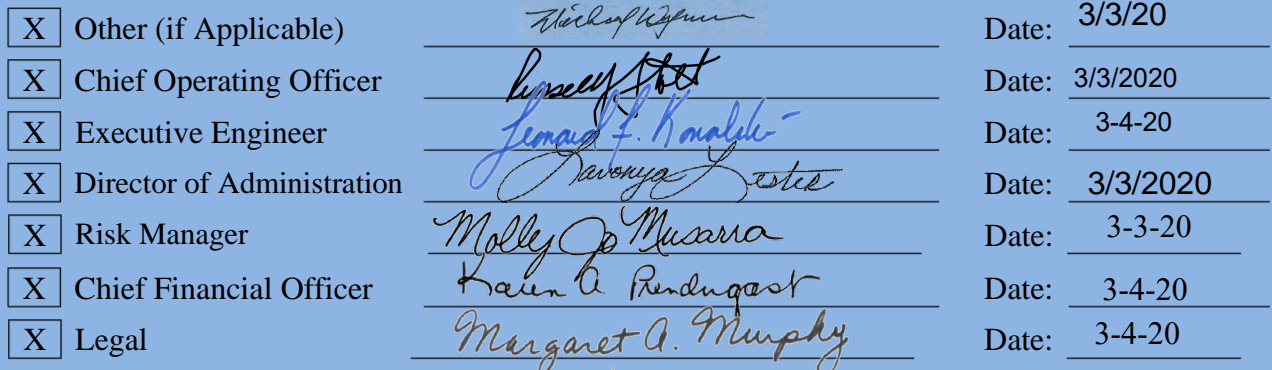 X Other (if Applicable) Michael Date: 3/3/20
X Chief Operating Officer Russell Date: 3/3/2020
X Executive Engineer Leonard F. Kowalski Date: 3-4-20
X Director of Administration Lavonya Lester Date: 3/3/2020
X Risk Manager Molly Jo Musarra Date: 3-3-20
X Chief Financial Officer Karen A Prendergast Date: 3-4-20
X Legal Margaret A. Murphy Date: 3-4-20